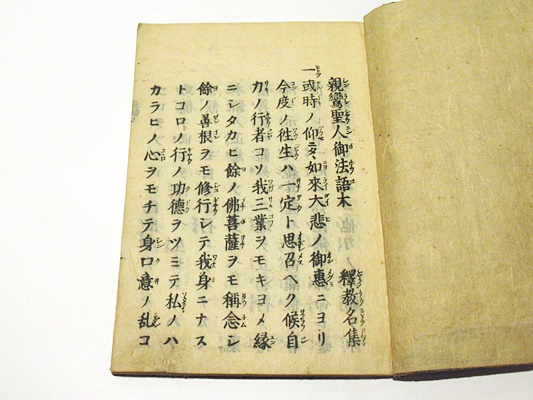 親鸞聖人御法語本 釋教名集
一或時ノ仰ニ如來大悲ノ御惠ニヨリ
今度ノ徃生ハ一定ト思召ヘク候自
力ノ行者コソ我三業ヲモキヨメ縁
ニシタカヒ餘ノ佛菩薩ヲモ稱念シ
餘ノ善根ヲモ修行シテ我身ニナス
トコロノ行ノ功德ヲツミテ私ノハ
カラヒノ心ヲモチテ身口意ノ乱コ